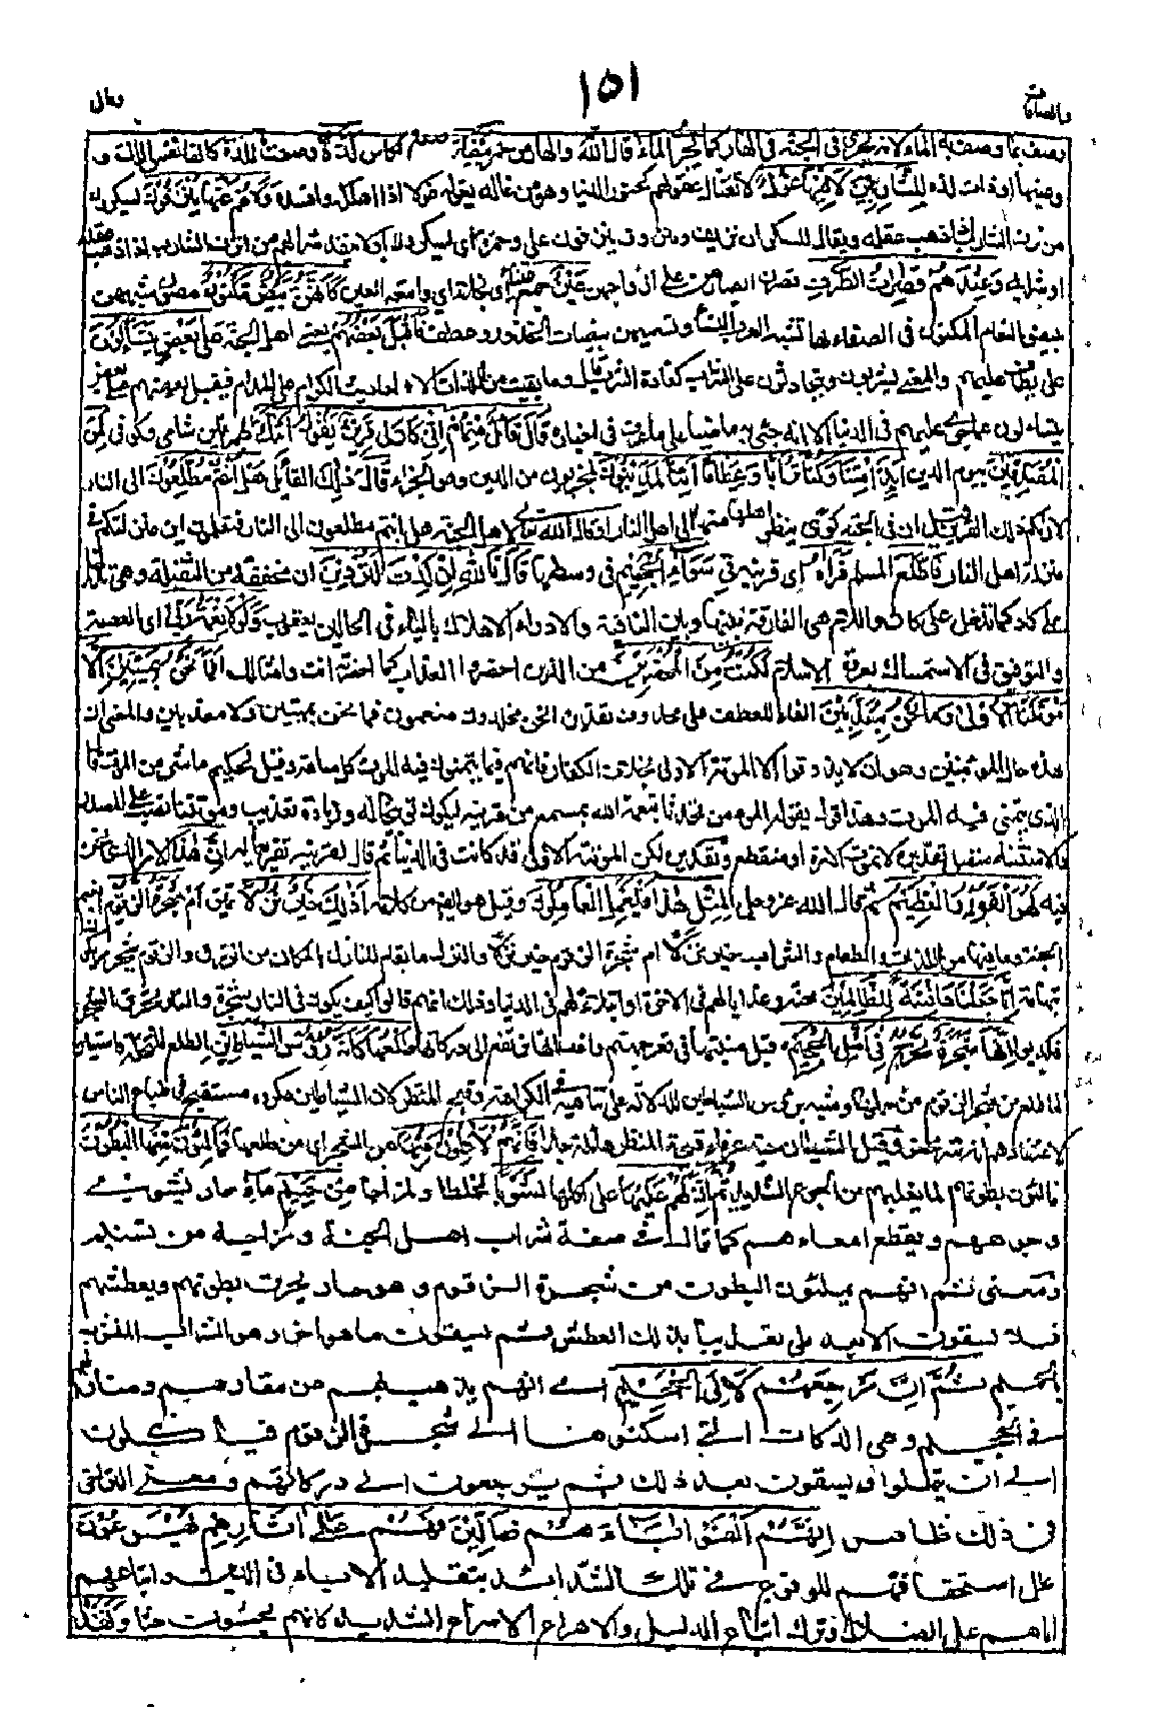 ١٥١
والصافات
ومالى
وصف بما وصف به الماء لانه يجرى فى الجنة فى انهار كما يجرى الماء قال الله وانهار من خمر بيضاء للكاس لذة وصفت باللذة كانها نفس اللذة و
وعينها او ذات لذة للشاربين لا فيها غول لا تغتال عقولهم كخمور الدنيا وهو من غاله يغوله غولا اذا اهلكه وافسده ولا هم عنها ينزفون يسكرون
من نزف الشارب اذا ذهب عقله ويقال للسكران نزيف ومنزوف ينزفون على وحمزة اى لا يسكرون او لا ينفد شرابهم من انزف الشارب اذا ذهب عقله
او شرابه وعندهم قاصرات الطرف قصرن ابصارهن على ازواجهن عين جمع عيناء اى نجلاء اى واسعة العين كانهن بيض مكنون مصون شبههن
ببيض النعام المكنون فى الصفاء وبها تشبه العرب النساء وتسميهن بيضات الخدور وعطف فاقبل بعضهم يعنى اهل الجنة على بعض يتساءلون
على يطاف عليهم والمعنى يشربون ويتحادثون على الشراب كعادة الشرب قال وما بقيت من اللذات الا احاديث الكرام على المدام فيقبل بعضهم على بعض
يتساءلون عما جرى عليهم فى الدنيا الا انه جئ به ماضيا على ما عرف فى اخباره قال قائل منهم انى كان لى قرين يقول ائنك بهمزتين شامى وكوفى لمن
المصدقين بيوم الدين ائذا متنا وكنا ترابا وعظاما ائنا لمدينون لمجزيون من الدين وهو الجزاء قال ذلك القائل هل انتم مطلعون الى النار
لاريكم ذلك القرين قيل ان فى الجنة كوى ينظر اهلها منها الى اهل النار او قال الله تعالى لاهل الجنة هل انتم مطلعون الى النار فتعلموا اين منزلتكم
من منزلة اهل النار فاطلع المسلم فراه اى قرينه فى سواء الجحيم فى وسطها قال تالله ان كدت لتردين ان مخففة من الثقيلة وهى تدخل
على كاد كما تدخل على كان واللام هى الفارقة بينها وبين النافية والارداء الاهلاك بالياء فى الحالين يعقوب ولولا نعمة ربى اى العصمة
والتوفيق فى الاستمساك بعروة الاسلام لكنت من المحضرين من الذين احضروا العذاب كما احضرته انت وامثالك افما نحن بميتين الا
موتتنا الاولى وما نحن بمعذبين الفاء للعطف على محذوف تقديره انحن مخلدون منعمون فما نحن بميتين ولا معذبين والمعنى ان
هذه حال المؤمنين وهو ان لا يذوقوا الا الموتة الاولى بخلاف الكفار فانهم فيما يتمنون فيه الموت كل ساعة وقيل لحكيم ما شر من الموت قال
الذى يتمنى فيه الموت وهذا قول يقوله المؤمن تحدثا بنعمة الله بمسمع من قرينه ليكون توبيخا له وزيادة تعذيب وموتتنا نصب على المصدر
والاستثناء متصل تقديره لا نموت الا مرة او منقطع وتقديره لكن الموتة الاولى قد كانت فى الدنيا ثم قال لقرينه تقريعا له ان هذا الامر الذى نحن
فيه لهو الفوز العظيم ثم قال الله عز وجل لمثل هذا فليعمل العاملون وقيل هو ايضا من كلامه اذلك خير نزلا تمييز ام شجرة الزقوم اى نعيم
الجنة وما فيها من اللذات والطعام والشراب خير نزلا ام شجرة الزقوم خير نزلا والنزل ما يقام للنازل بالمكان من الرزق والزقوم شجر مر
بتهامة انا جعلناها فتنة للظالمين محنة وعذابا لهم فى الاخرة او ابتلاء لهم فى الدنيا وذلك انهم قالوا كيف يكون فى النار شجرة والنار تحرق الشجر
فكذبوا انها شجرة تخرج فى اصل الجحيم قيل منبتها فى قعر جهنم واغصانها ترتفع الى دركاتها طلعها كانه رءوس الشياطين الطلع للنخلة فاستعير
لما طلع من شجرة الزقوم من حملها وشبه برءوس الشياطين للدلالة على تناهيه فى الكراهة وقبح المنظر لان الشيطان مكروه مستقبح فى طباع الناس
لاعتقادهم انه شر محض وقيل الشيطان حية عرفاء قبيحة المنظر هائلة جدا فانهم لاكلون منها من الشجرة اى من طلعها فمالئون منها البطون
فمالئون بطونهم لما يغلبهم من الجوع الشديد ثم ان لهم عليها على اكلها لشوبا لخلطا ولمزاجا من حميم ماء حار يشوى
وجوههم ويقطع امعاءهم كما قال فى صفة شراب اهل الجنة ومزاجه من تسنيم
ومعنى ثم انهم يملئون البطون من شجرة الزقوم وهو حار يحرق بطونهم ويعطشهم
فلا يسقون الا بعد ملى تعذيبا بذلك العطش ثم يسقون ما هو احر وهو الشراب المشوب
بالحميم ثم ان مرجعهم لالى الجحيم اى انهم يذهب بهم عن مقارهم ومنازلهم
فى الجحيم وهى الدركات التى اسكنوها الى شجرة الزقوم فياكلون
الى ان يتملوا ويسقون بعد ذلك ثم يرجعون الى دركاتهم ومعنى التراخى
فى ذلك ظاهر انهم الفوا اباءهم ضالين فهم على اثارهم يهرعون
علل استحقاقهم للوقوع فى تلك الشدائد بتقليد الاباء فى الدين واتباعهم
اياهم على الضلال وترك اتباع الدليل والاهراع الاسراع الشديد كانهم يحثون حثا ولقد